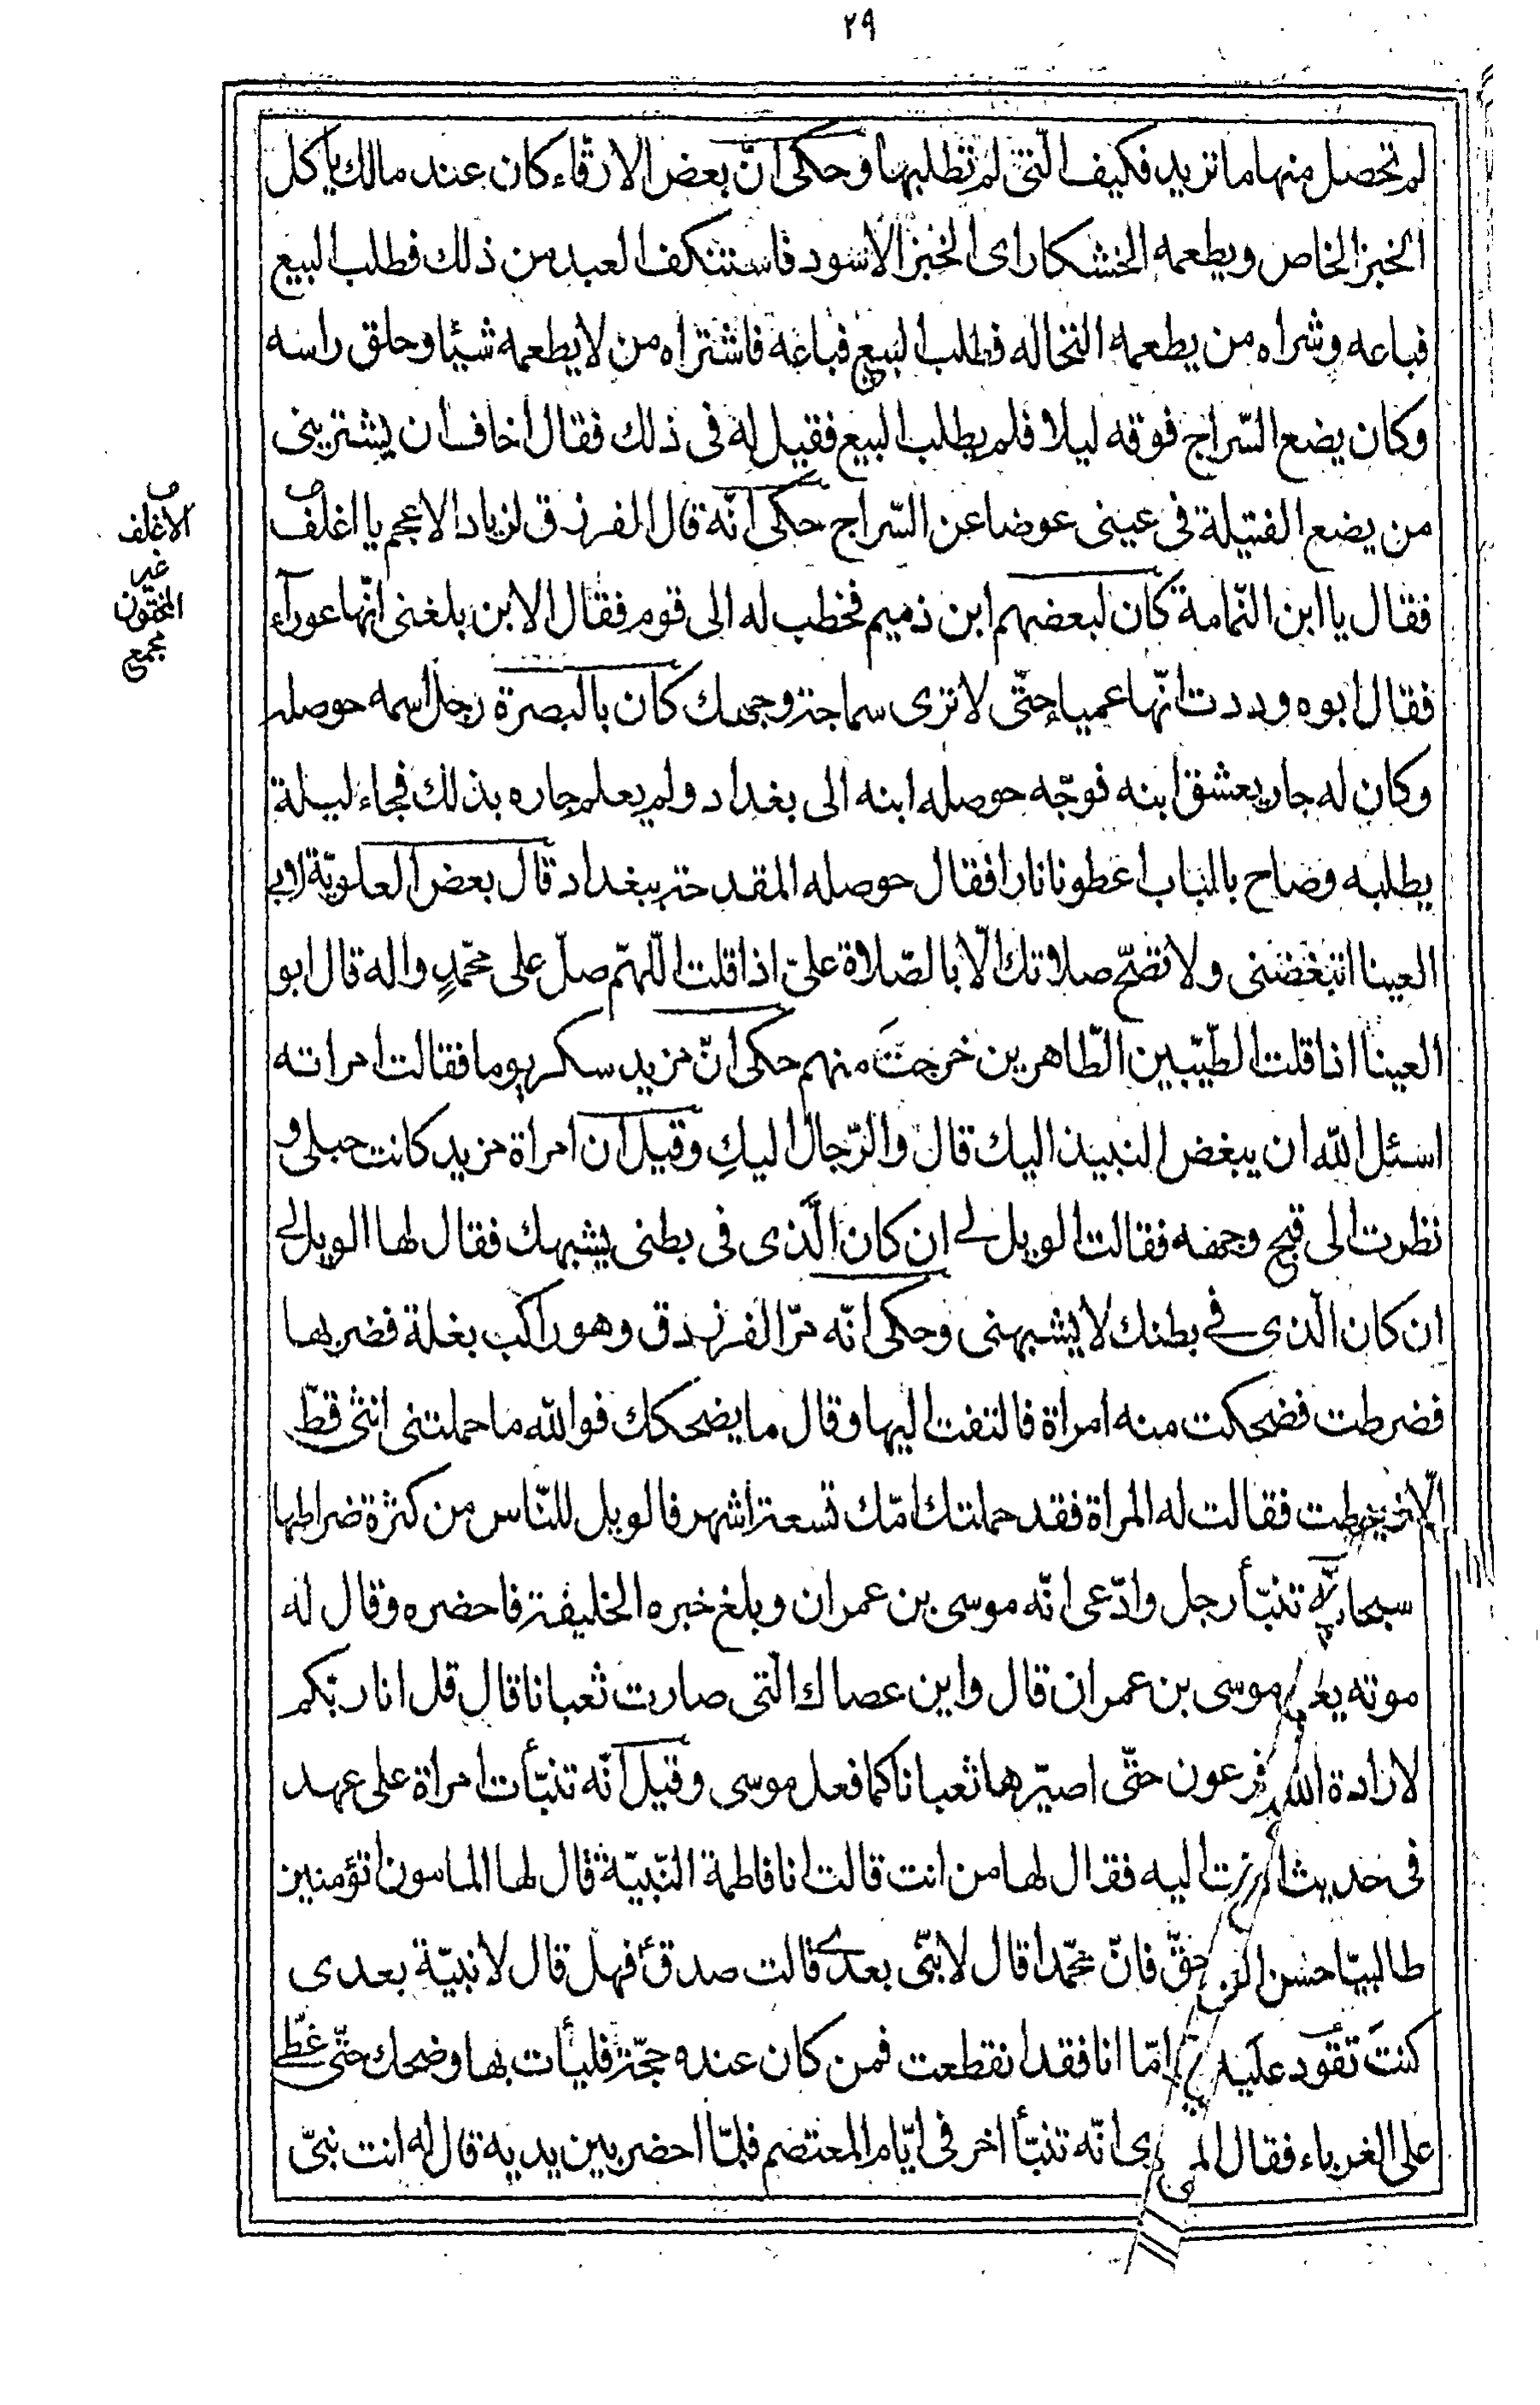 ٢٩
لم تحصل منها ما تريد فكيف الّتى لم تطلبها وحكى انّ بعض الارقّاء كان عند مالك ياكل
الخبز الخاص ويطعمه الخشكار اى الخبز الاسود فاستنكف العبد من ذلك فطلب البيع
فباعه وشراه من يطعمه النخاله فطلب البيع فباعه فاشتراه من لا يطعمه شيئا وحلق راسه
وكان يضع السّراج فوقه ليلا فلم يطلب البيع فقيل له فى ذلك فقال اخاف ان يشترينى
من يضع الفتيلة فى عينى عوضا عن السّراج حكى انّه قال الفرزدق لزياد الاعجم يا اغلف
فقال يا ابن النّمامة كان لبعضهم ابن ذميم فخطب له الى قوم فقال الابن بلغنى انّها عورآء
فقال ابوه وددت انّها عمياء حتّى لا ترى سماجة وجهك كان بالبصرة رجل اسمه حوصله
وكان له جار يعشق ابنه فوجّه حوصله ابنه الى بغداد ولم يعلم جاره بذلك فجاء ليلة
يطلبه وصاح بالباب اعطونا نارا فقال حوصله المقدحة ببغداد قال بعض العلويّة لابى
العينا اتبغضنى ولا تصحّ صلاتك الّا بالصّلاة علىّ اذا قلت اللّهمّ صلّ على محمّدٍ واله قال ابو
العينا اذا قلت الطّيّبين الطّاهرين خرجتَ منهم حكى انّ مزيد سكر يوما فقالت امراته
اسئل الله ان يبغض النبيذ اليك قال والرّجال اليكِ وقيل ان امراة مزيد كانت حبلى و
نظرت الى قبح وجهه فقالت الويل لى ان كان الّذى فى بطنى يشبهك فقال لها الويل لى
ان كان الّذى فى بطنك لا يشبهنى وحكى انّه مرّ الفرزدق وهو راكب بغلة فضربها
فضرطت فضحكت منه امراة فالتفت اليها وقال ما يضحكك فوالله ما حملتنى انثى قطّ
الّا ضرطت فقالت له المراة فقد حملتك امّك تسعة اشهر فالويل للنّاس من كثرة ضراطها
تنبّأ رجل وادّعى انّه موسى بن عمران وبلغ خبره الخليفة فاحضره وقال له
موسى بن عمران قال واين عصاك الّتى صارت ثعبانا قال قل انا ربّكم
فرعون حتّى اصيّرها ثعبانا كما فعل موسى وقيل انّه تنبّأت امراة على عهد
اليه فقال لها من انت قالت انا فاطمة النّبيّة قال لها المامون اتؤمنين
حقّ فانّ محمّدا قال لا نبىّ بعدى قالت صدق فهل قال لا نبيّة بعدى
امّا انا فقد انقطعت فمن كان عنده حجّة فليأت بها وضحك حتّى غطّى
انّه تنبّأ اخر فى ايّام المعتصم فلمّا احضر بين يديه قال له انت نبىّ
الأغلف
غير
المختون
مجمع